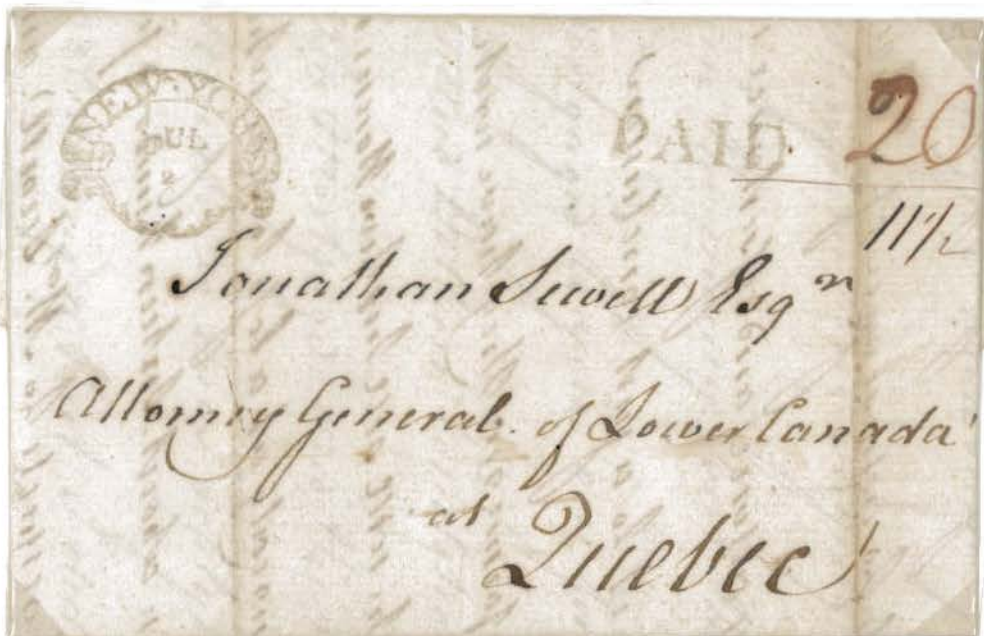 NEW·YORK
JUL
2
PAID
20
11½
Jonathan Sewell Esqr
Attorney General of Lower Canada
at
Quebec